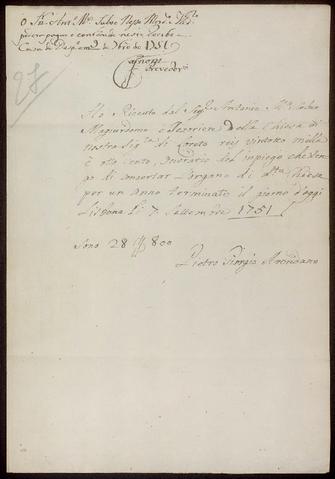 O Sr. Ant.º M.ª Salvi
pague e contínue neste recibo
Caza do Desp.º em 7.bro de 1751
Provedor
27
Ho Riceuto dal Sig.r Antonio M.a Salvi
Magiurdomo e Tezoriere della Chiesa di
nostra Sig.ra di Loreto reis Vintotto milla
è otto cento, onorario del impiego che tengo
di acordar l'organo di d.tta Chiesa
per un Anno terminato il giorno d'oggi
Lisbona Li 7 Settembre 1751
Sono 28 $ 800
Pietro Giorgio Avondano